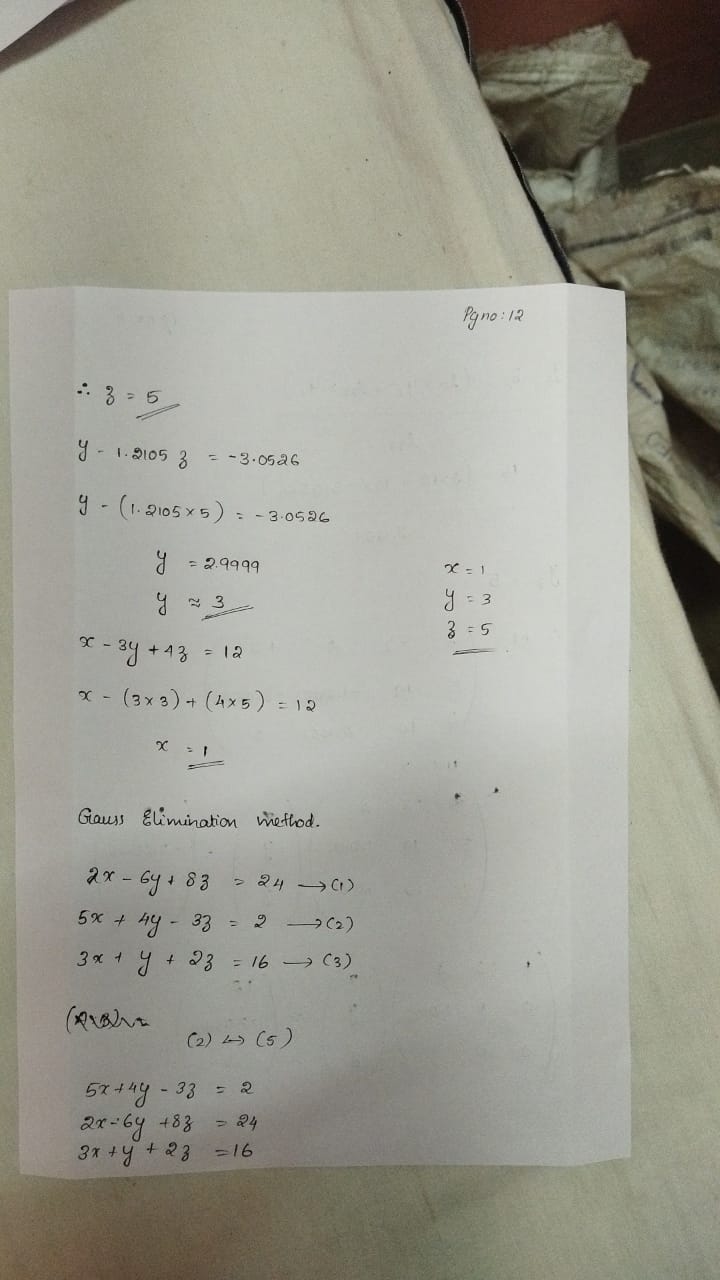 Pg no: 12
∴ z = 5
y - 1.2105 z = -3.0526
y - (1.2105 × 5) = -3.0526
y = 2.9999
y ≈ 3
x - 3y + 4z = 12
x - (3×3) + (4×5) = 12
x = 1
x = 1
y = 3
z = 5
Gauss Elimination method.
2x - 6y + 8z = 24 → (1)
5x + 4y - 3z = 2 → (2)
3x + y + 2z = 16 → (3)
(2) ↔ (5)
5x + 4y - 3z = 2
2x - 6y + 8z = 24
3x + y + 2z = 16